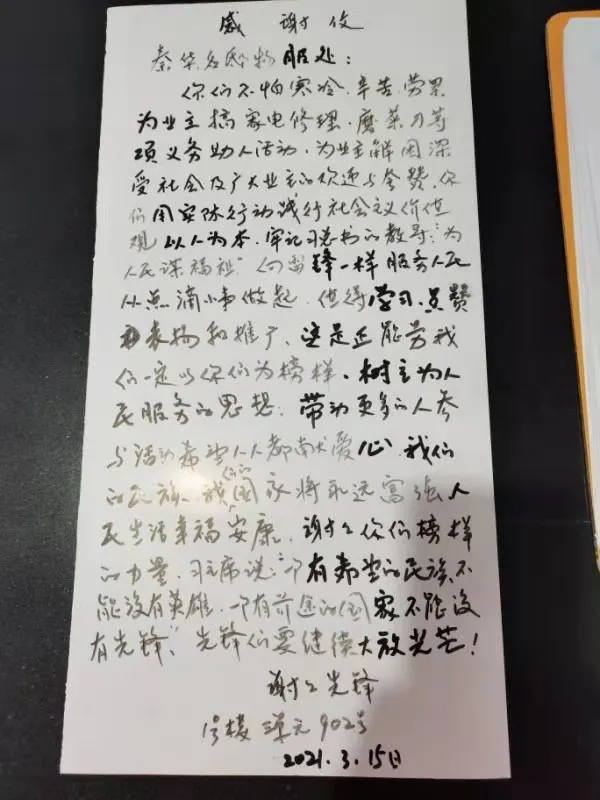 感谢信
秦华名邸物服处:
你们不怕寒冷、辛苦、劳累
为业主搞家电修理、磨菜刀等
项义务助人活动,为业主解困深
受社会及广大业主的欢迎与全赞,你
们用实际行动践行社会主义价值
观以人为本,牢记习总书的教导:"为
人民谋福祉"向雷锋一样服务人民
从点滴小事做起,值得学习、点赞
和表扬和推广,这是正能劳我
们一定以你们为榜样、树立为人
民服务的思想,带动更多的人参
与活动希望人人都献爱心、我们
的民族、我们的国家将永远富强人
民生活幸福、安康,谢谢你们榜样
的力量,习主席说:"一个有希望的民族不
能没有英雄,一个有前途的国家不能没
有先锋",先锋们要继续大放光芒!
谢谢先锋
1号楼 三单元 902号
2021.3.15日